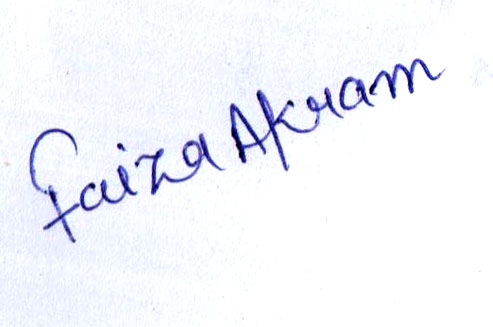 Faiza Akram